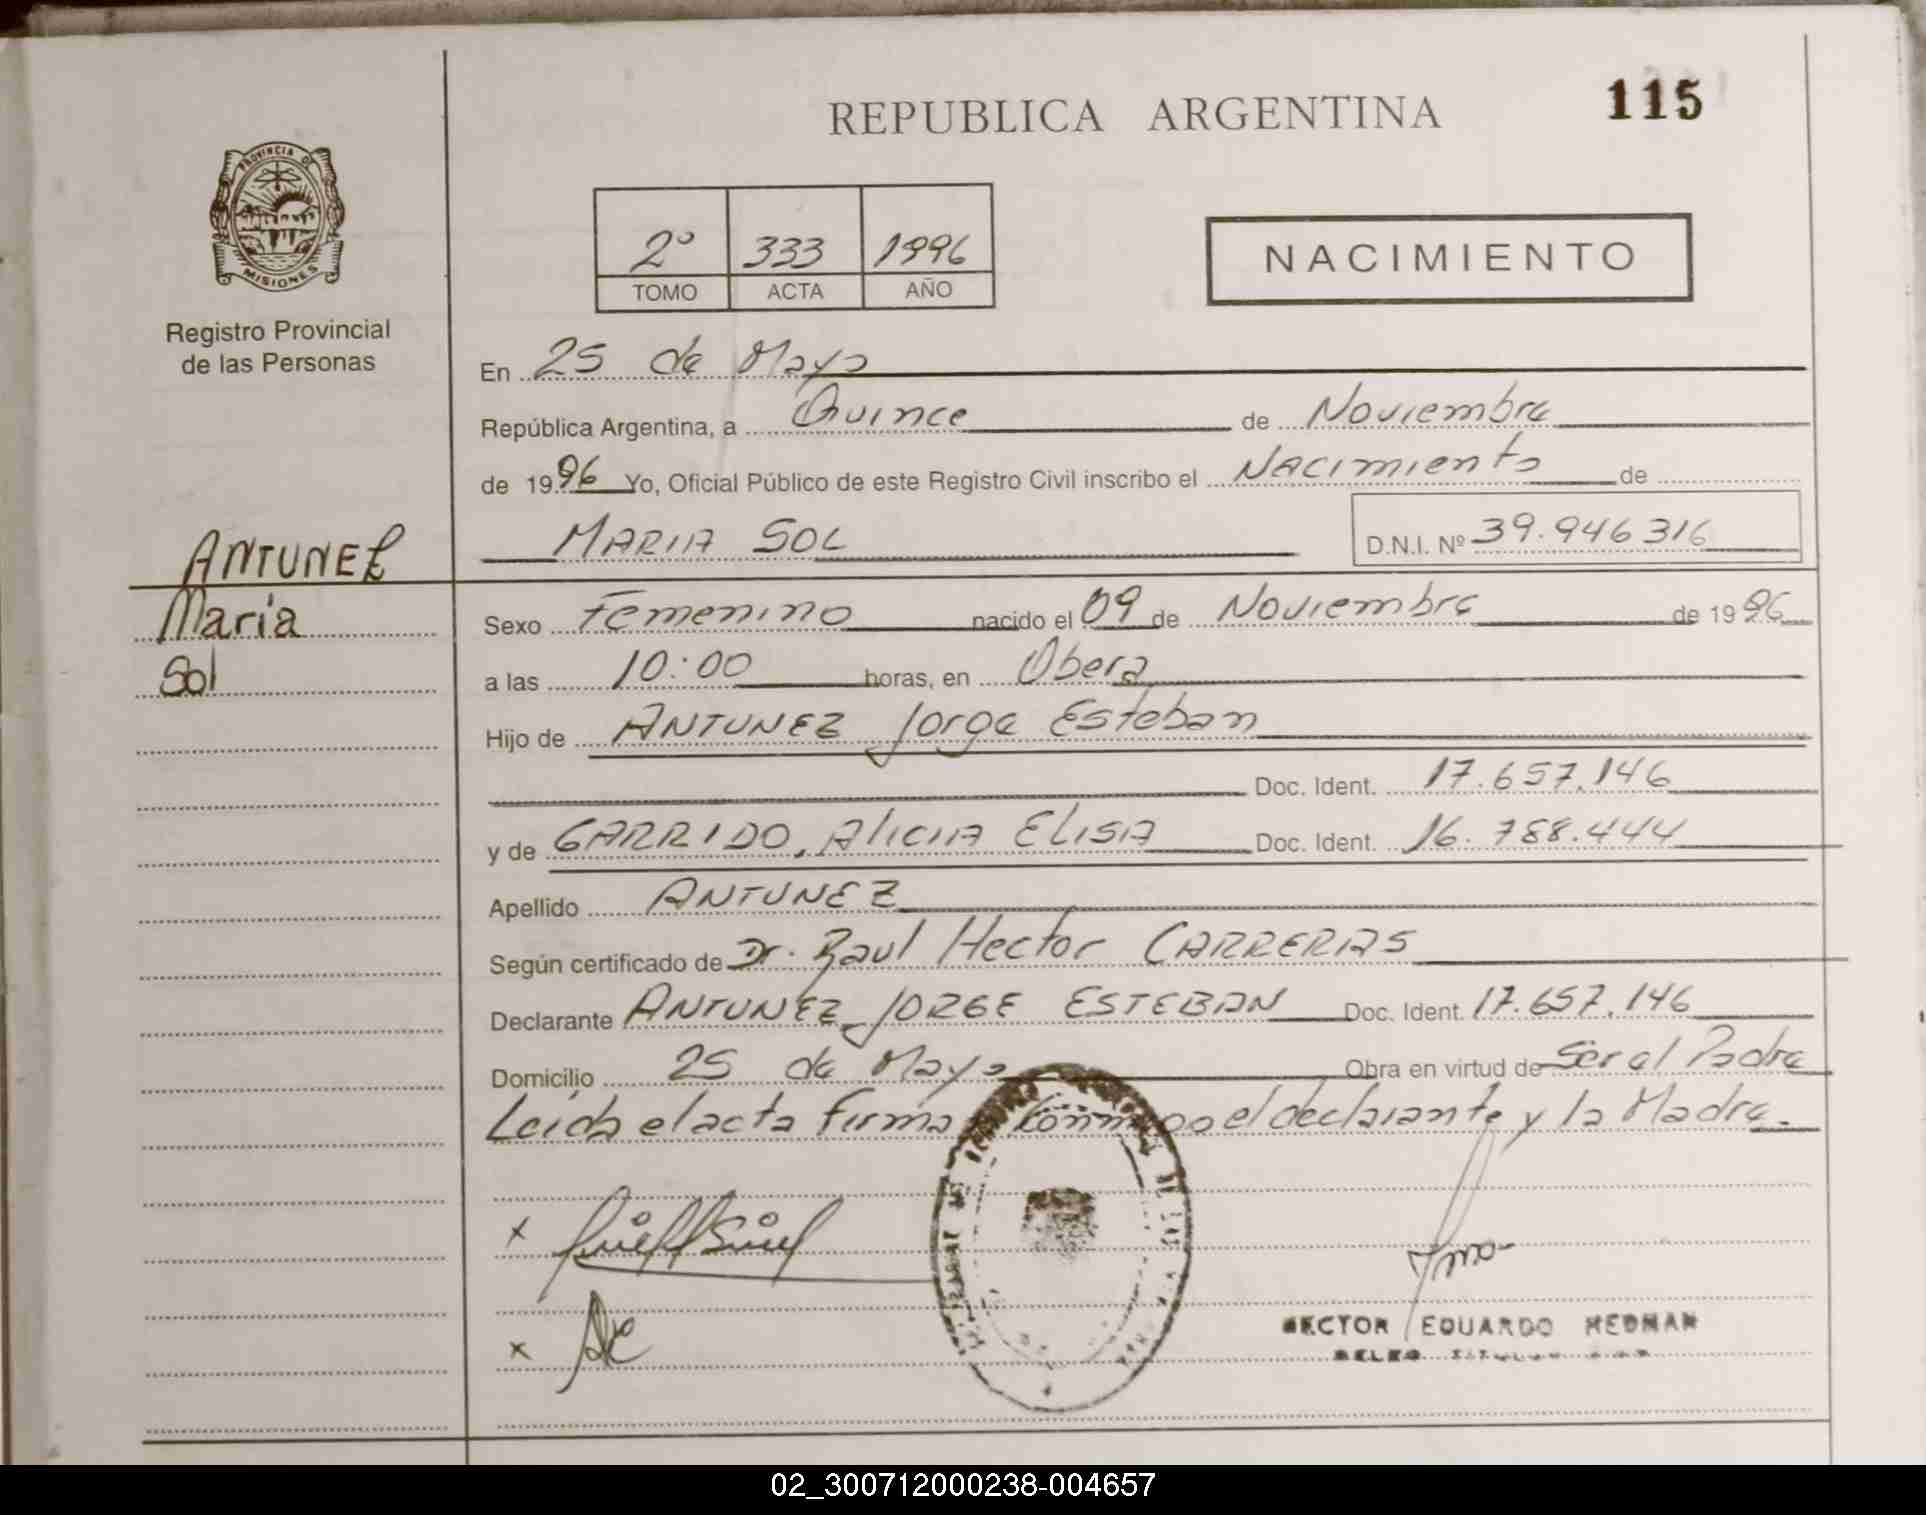 REPUBLICA ARGENTINA
115
PROVINCIA DE
MISIONES
Registro Provincial
de las Personas
2º 333 1996
TOMO ACTA AÑO
NACIMIENTO
En 25 de Mayo
República Argentina, a Quince de Noviembre
de 1996 Yo, Oficial Público de este Registro Civil inscribo el Nacimiento de
MARIA SOL
D.N.I. Nº 39.946316
ANTUNEZ
Maria
Sol
Sexo Femenino nacido el 09 de Noviembre de 1996
a las 10:00 horas, en Obera
Hijo de ANTUNEZ Jorge Esteban
Doc. Ident. 17.657.146
y de GARRIDO, AliciA ELISA Doc. Ident. 16.788.444
Apellido ANTUNEZ
Según certificado de Dr. Raul Hector CARRERAS
Declarante ANTUNEZ JORGE ESTEBAN Doc. Ident. 17.657.146
Domicilio 25 de Mayo Obra en virtud de Ser el Padre
Leida el acta Firma Conmigo el declarante y la Madre.
x
x
HECTOR EDUARDO
02_300712000238-004657